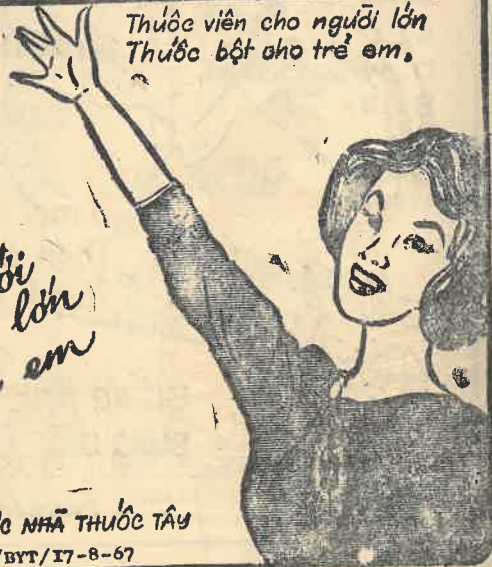 Thuốc viên cho người lớn
Thuốc bột cho trẻ em.
lớn
em
NHÀ THUỐC TÂY
/BYT/I7-8-67